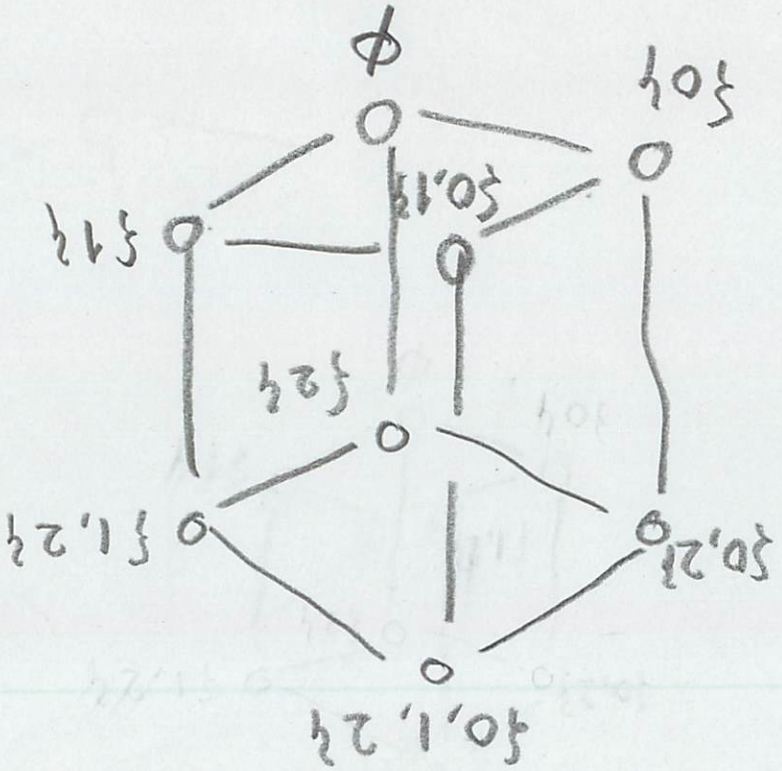 {0,1,2}
{0,2}
{1,2}
{2}
{1}
{0,1}
{0}
∅